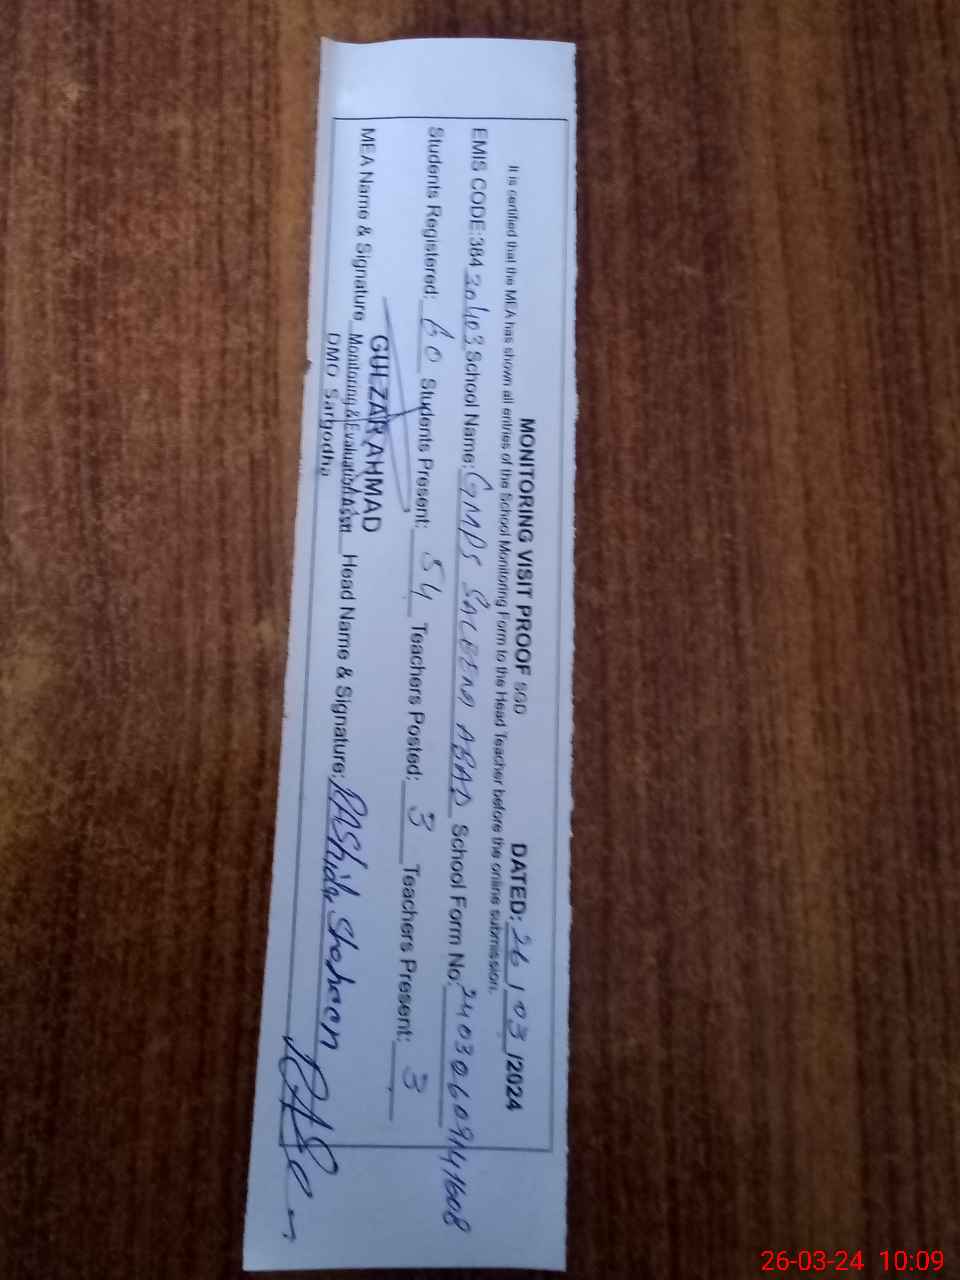 MONITORING VISIT PROOF SGD DATED: 26/03/2024
It is certified that the MEA has shown all entries of the School Monitoring Form to the Head Teacher before the online submission.
EMIS CODE:384 30403 School Name: GMPS SALEEM ABAD School Form No. 24030609141608
Students Registered: 60 Students Present: 54 Teachers Posted: 3 Teachers Present: 3
GULZAR AHMAD
MEA Name & Signature Monitoring & Evaluation Asstt Head Name & Signature: RAShida Shaheen
DMO Sargodha
26-03-24 10:09